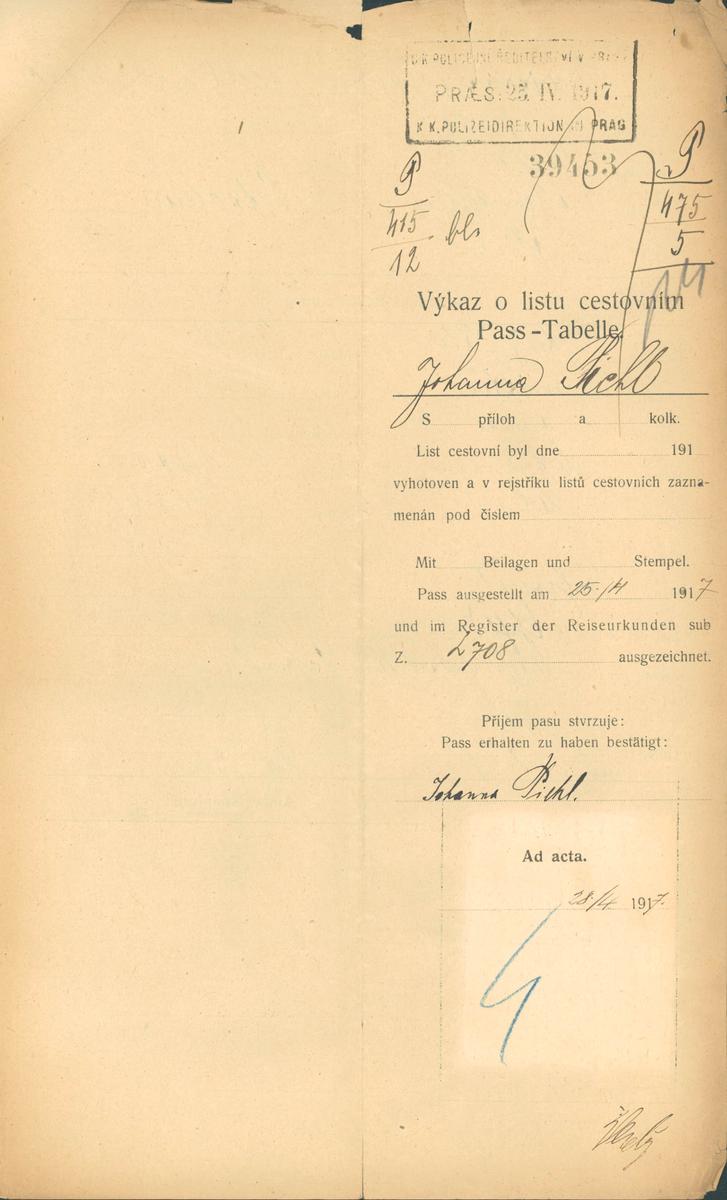 K. K. POLICEJNÍ ŘEDITELSTVÍ V PRAZE
PRÆS. 25. IV. 1917.
K. K. POLIZEIDIREKTION IN PRAG
39453
P
415
12
P
475
5
Výkaz o listu cestovním
Pass-Tabelle.
Johanna Pichl
S příloh a kolk.
List cestovní byl dne 191
vyhotoven a v rejstříku listů cestovních zazna-
menán pod číslem
Mit Beilagen und Stempel.
Pass ausgestellt am 25./4 1917
und im Register der Reiseurkunden sub
Z. 2708 ausgezeichnet.
Příjem pasu stvrzuje:
Pass erhalten zu haben bestätigt:
Johanna Pichl.
Ad acta.
28/4 1917.